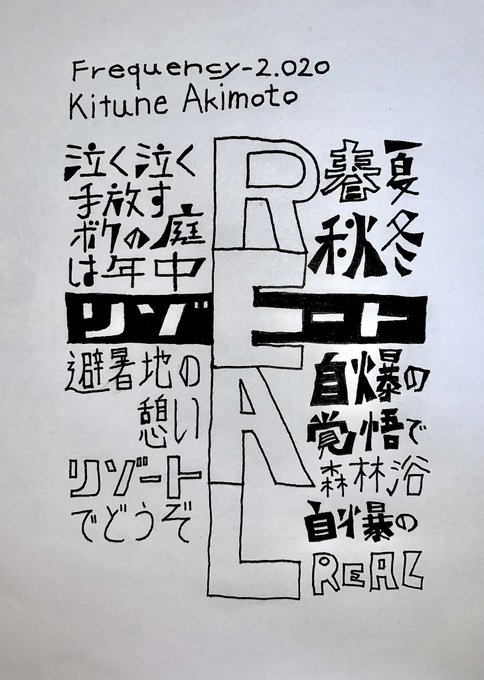 Frequency-2.020
Kitune Akimoto
泣く泣く
手放す
ボクの庭
は年中
REAL
春夏
秋冬
リゾート
避暑地の
憩い
リゾート
でどうぞ
自爆の
覚悟で
森林浴
自爆の
REAL